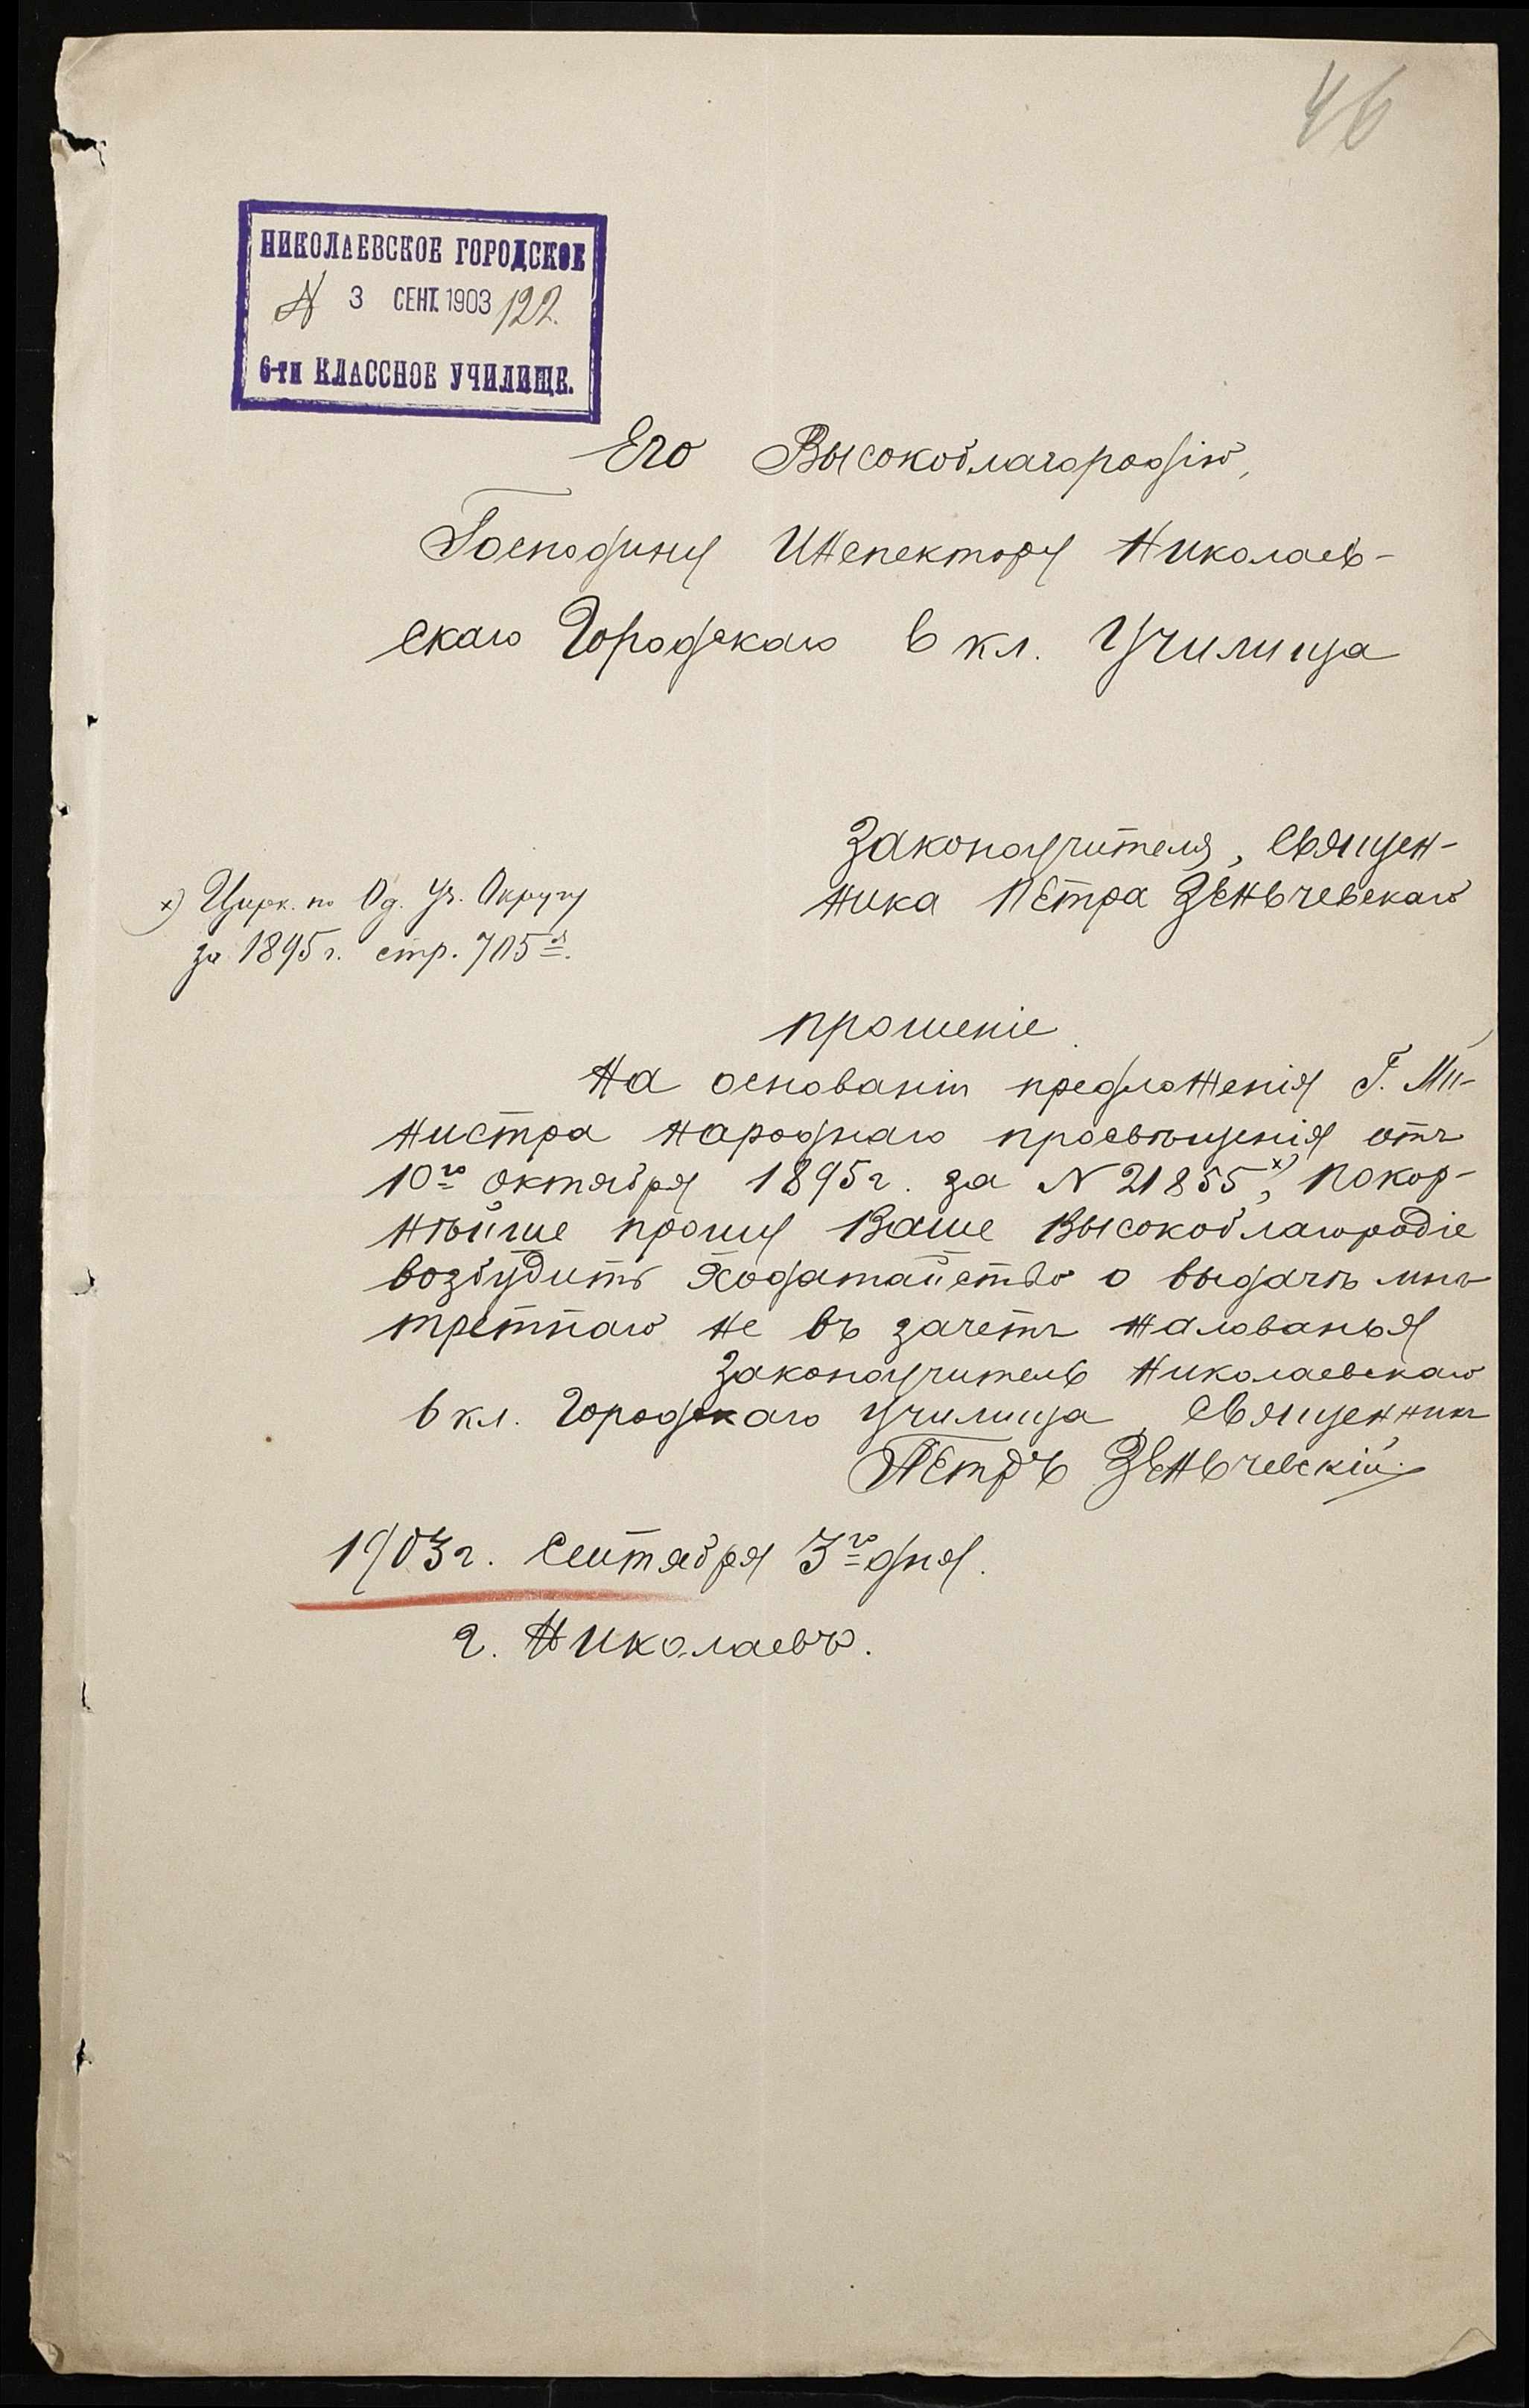 46
НИКОЛАЕВСКОЕ ГОРОДСКОЕ
№ 3 СЕНТ. 1903 122.
6-ти КЛАССНОЕ УЧИЛИЩЕ.
Его Высокоблагородію,
Господину Инспектору Николаев-
скаго Городскаго 6 кл. Училища
Законоучителя, Священ-
ника Петра Зеньчевскаго
х) Цирк. по Од. Уч. Округу
за 1895 г. стр. 705я.
прошеніе.
На основаніи предложенія Г. Ми-
нистра народнаго просвѣщенія отъ
10го октября 1895 г. за № 21855х), покор-
нѣйше прошу Ваше Высокоблагородіе
возбудить ходатайство о выдачѣ мнѣ
третнаго не въ зачетъ жалованья
Законоучитель Николаевскаго
6 кл. Городскаго училища, Священникъ
Петръ Зеньчевскій.
1903 г. Сентября 3го дня.
г. Николаевъ.